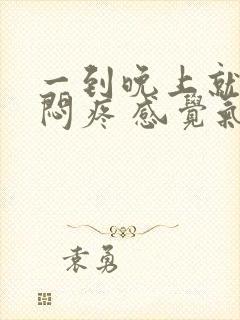 一到晚上就
悶疼 感覺氣
袁勇